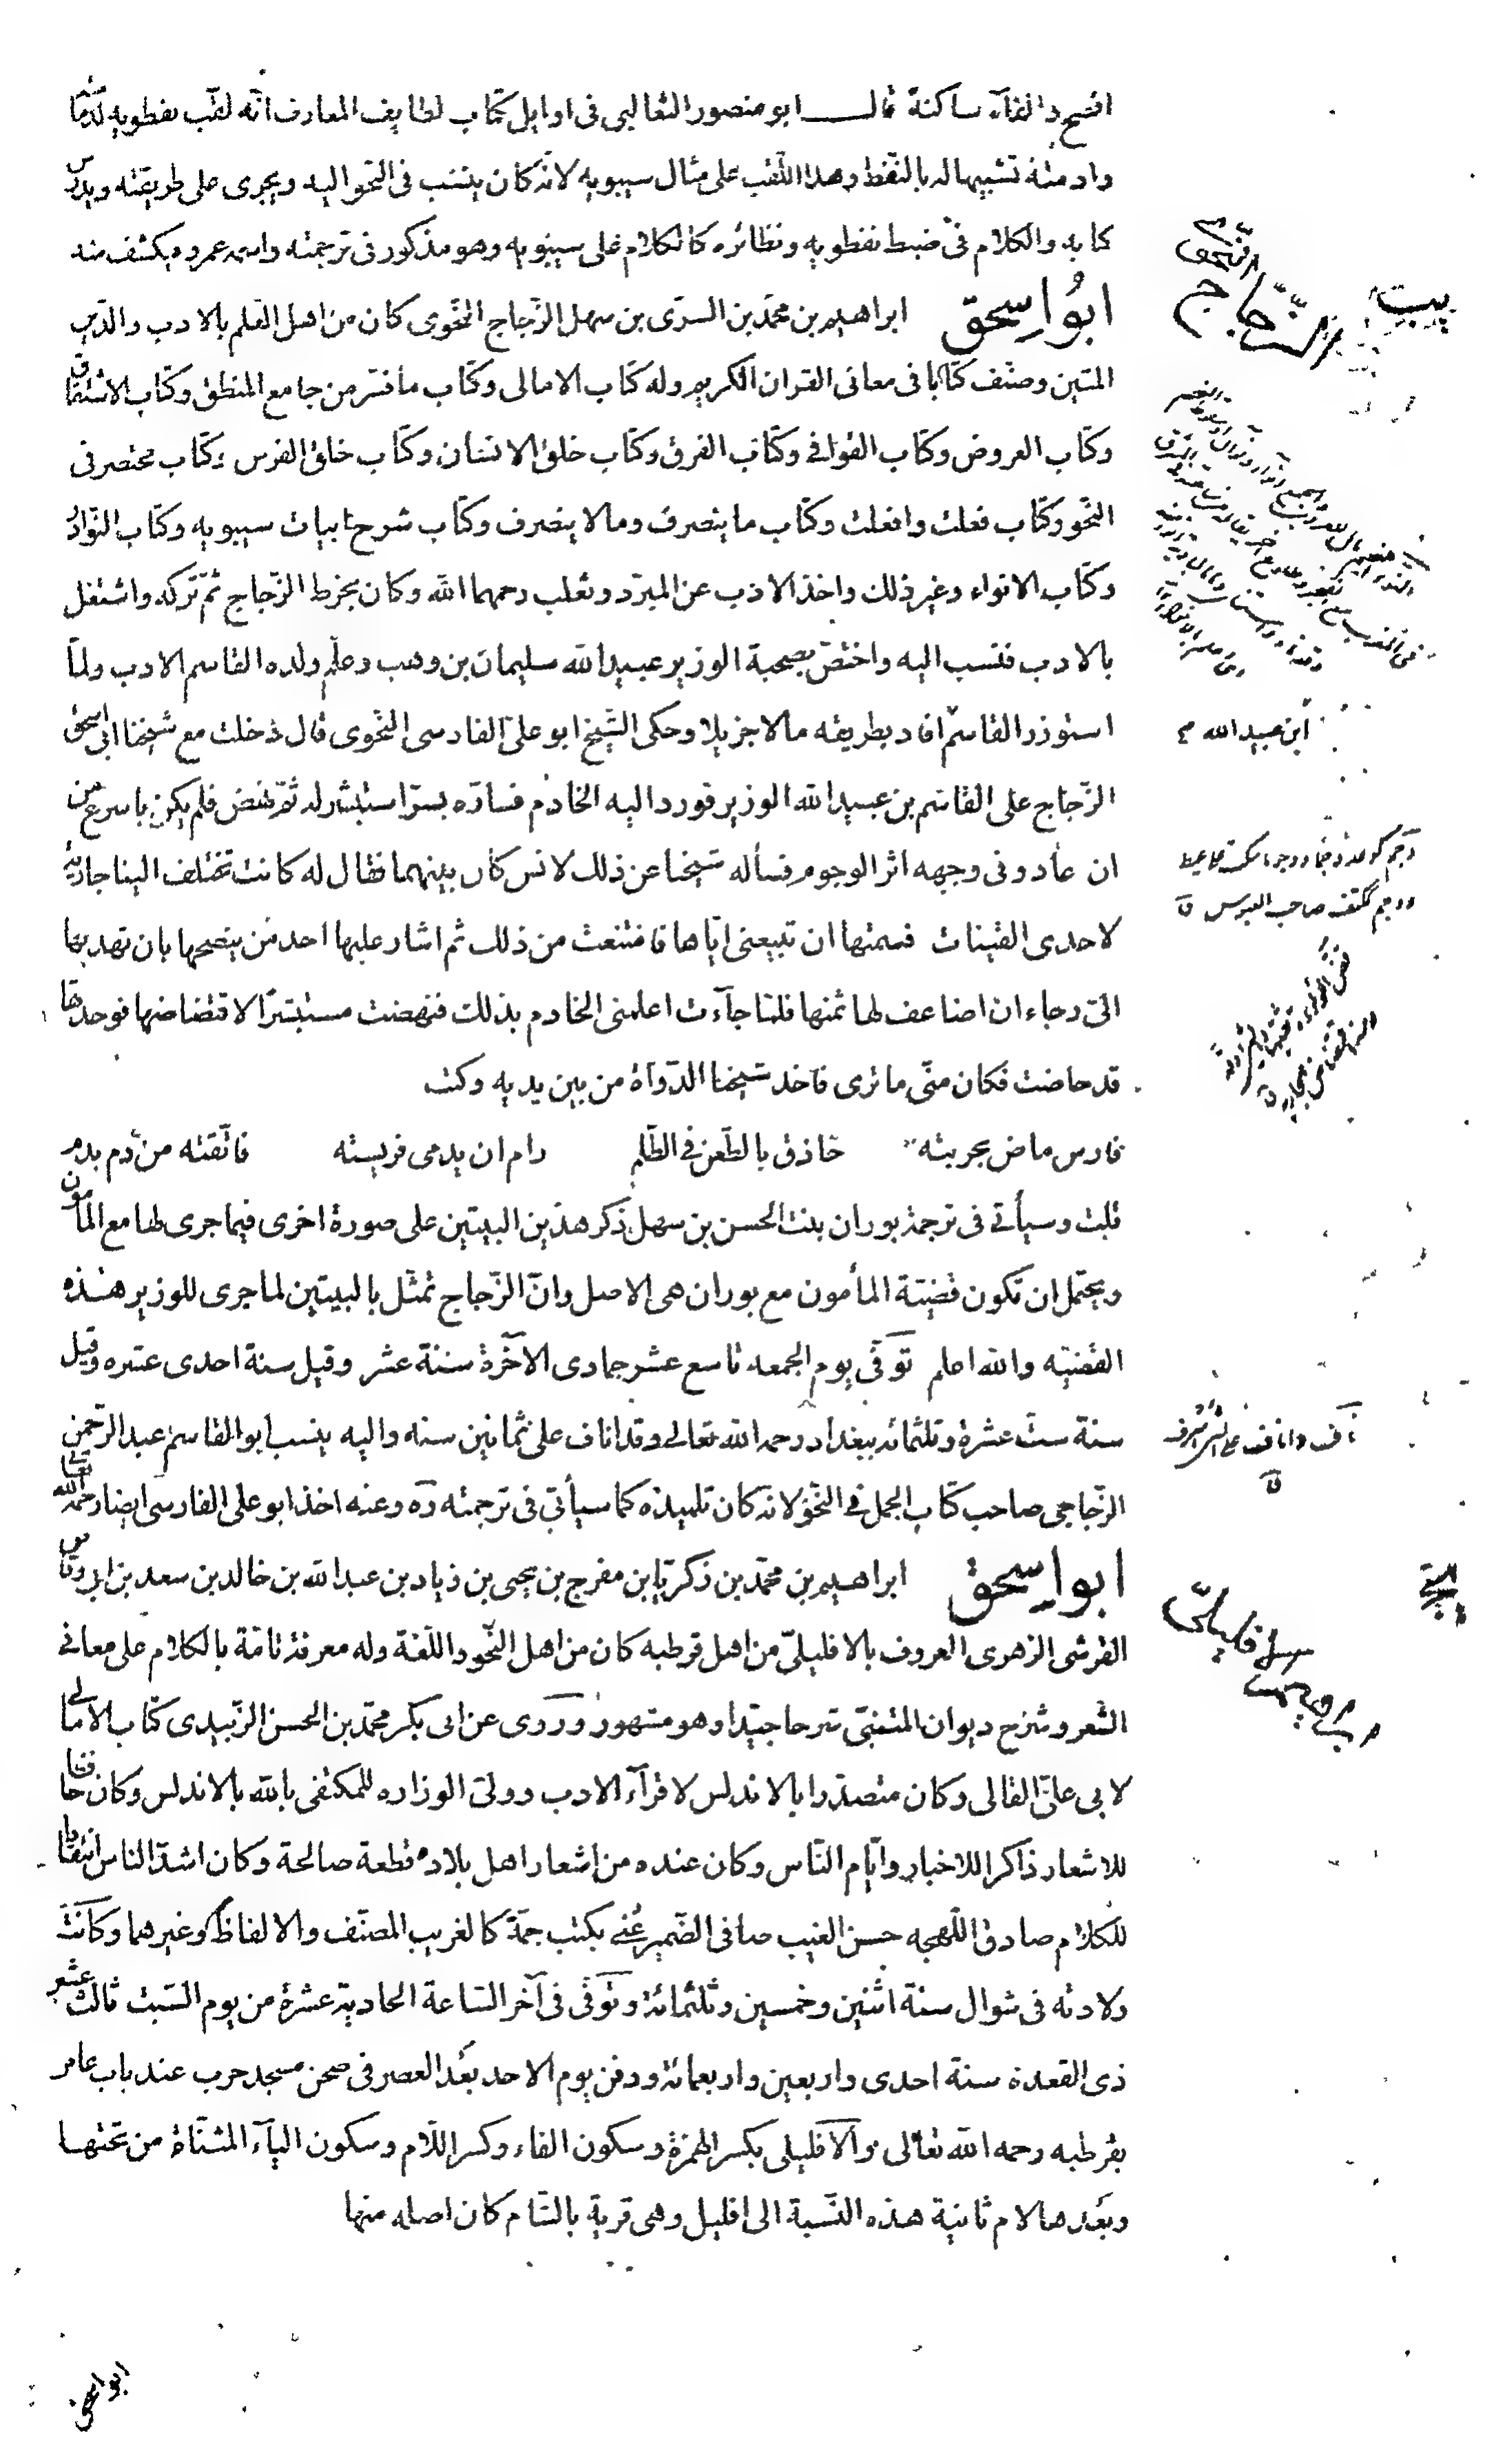 افصح والفاء ساكنة قال ابو منصور الثعالبى فى اوايل كتاب لطايف المعارف انه لقب نفطويه لدمامته
وادمته تشبيها له بالنفط وهذا اللقب على مثال سيبويه لانه كان ينسب فى النحو اليه ويجرى على طريقته ويدرس
كتابه والكلام فى ضبط نفطويه ونظائره كالكلام على سيبويه وهو مذكور فى ترجمته واسمه عمرو فيكشف منه
ابو اسحق ابراهيم بن محمد بن السرى بن سهل الزجاج النحوى كان من اهل العلم بالادب والدين
المتين وصنف كتابا فى معانى القران الكريم وله كتاب الامالى وكتاب ما فسر من جامع المنطق وكتاب الاشتقاق
وكتاب العروض وكتاب القوافى وكتاب الفرق وكتاب خلق الانسان وكتاب خلق الفرس وكتاب مختصر فى
النحو وكتاب فعلت وافعلت وكتاب ما ينصرف وما لا ينصرف وكتاب شرح ابيات سيبويه وكتاب النوادر
وكتاب الانواء وغير ذلك واخذ الادب عن المبرد وثعلب رحمهما الله وكان يخرط الزجاج ثم تركه واشتغل
بالادب فنسب اليه واختص بصحبة الوزير عبيد الله سليمان بن وهب وعلم ولده القاسم الادب ولما
استوزر القاسم افاد بطريقه مالا جزيلا وحكى الشيخ ابو على الفارسى النحوى قال دخلت مع شيخنا ابى اسحق
الزجاج على القاسم بن عبيد الله الوزير فورد اليه الخادم فساره بسر استبشر له ثم نهض فلم يكن باسرع من
ان عاد وفى وجهه اثر الوجوم فسأله شيخنا عن ذلك لانس كان بينهما فقال له كانت تختلف الينا جارية
لاحدى القينات فسمتها ان تبيعنى اياها فامتنعت من ذلك ثم اشار عليها احد من ينصحها بان تهديها
الى رجاء ان اضاعف لها ثمنها فلما جآءت اعلمنى الخادم بذلك فنهضت مستبشرا لاقتضاضها فوجدتها
قد حاضت فكان منى ما ترى فاخذ شيخنا الدواة من بين يديه وكتب
فارس ماض بحربته حاذق بالطعن فى الظلم رام ان يدمى فريسته فاتقته من دم بدم
قلت وسيأتى فى ترجمة بوران بنت الحسن بن سهل ذكر هذين البيتين على صورة اخرى فيما جرى لها مع المامون
ويحتمل ان تكون قضية المأمون مع بوران هى الاصل وان الزجاج تمثل بالبيتين لما جرى للوزير هذه
القضيه والله اعلم توفى يوم الجمعه تاسع عشر جمادى الآخرة سنة عشر وقيل سنة احدى عشره وقيل
سنة ست عشرة وثلثمائه ببغداد رحمه الله تعالى وقد اناف على ثمانين سنه واليه ينسب ابو القاسم عبد الرحمن
الزجاجى صاحب كتاب الجمل فى النحو لانه كان تلميذه كما سيأتى فى ترجمته ره وعنه اخذ ابو على الفارسى ايضا رحمه الله تعالى
ابو اسحق ابراهيم بن محمد بن زكريا بن مفرج بن يحيى بن زياد بن عبد الله بن خالد بن سعد بن ابى وقاص
القرشى الزهرى المعروف بالافليلى من اهل قرطبه كان من اهل النحو واللغة وله معرفة تامة بالكلام على معانى
الشعر وشرح ديوان المتنبى شرحا جيدا وهو مشهور وروى عن ابى بكر محمد بن الحسن الزبيدى كتاب الامالى
لابى على القالى وكان متصدرا بالاندلس لاقرآء الادب وولى الوزاره للمكتفى بالله بالاندلس وكان حافظا
للاشعار ذاكرا للاخبار وايام الناس وكان عنده من اشعار اهل بلاده قطعة صالحة وكان اشد الناس انتقادا
للكلام صادق اللهجه حسن الغيب صافى الضمير عنى بكتب جمة كالغريب المصنف والالفاظ وغيرهما وكانت
ولادته فى شوال سنة اثنين وخمسين وثلثمائة وتوفى فى آخر الساعة الحادية عشرة من يوم السبت ثالث عشر
ذى القعدة سنة احدى واربعين واربعمائة ودفن يوم الاحد بعد العصر فى صحن مسجد حرب عند باب عامر
بقرطبه رحمه الله تعالى والافليلى بكسر الهمزة وسكون الفاء وكسر اللام وسكون الياء المثناة من تحتها
وبعدها لام ثانية هذه النسبة الى افليل وهى قرية بالشام كان اصله منها
الزجاج
النحوى
ابن عبيد الله
ابو اسحق